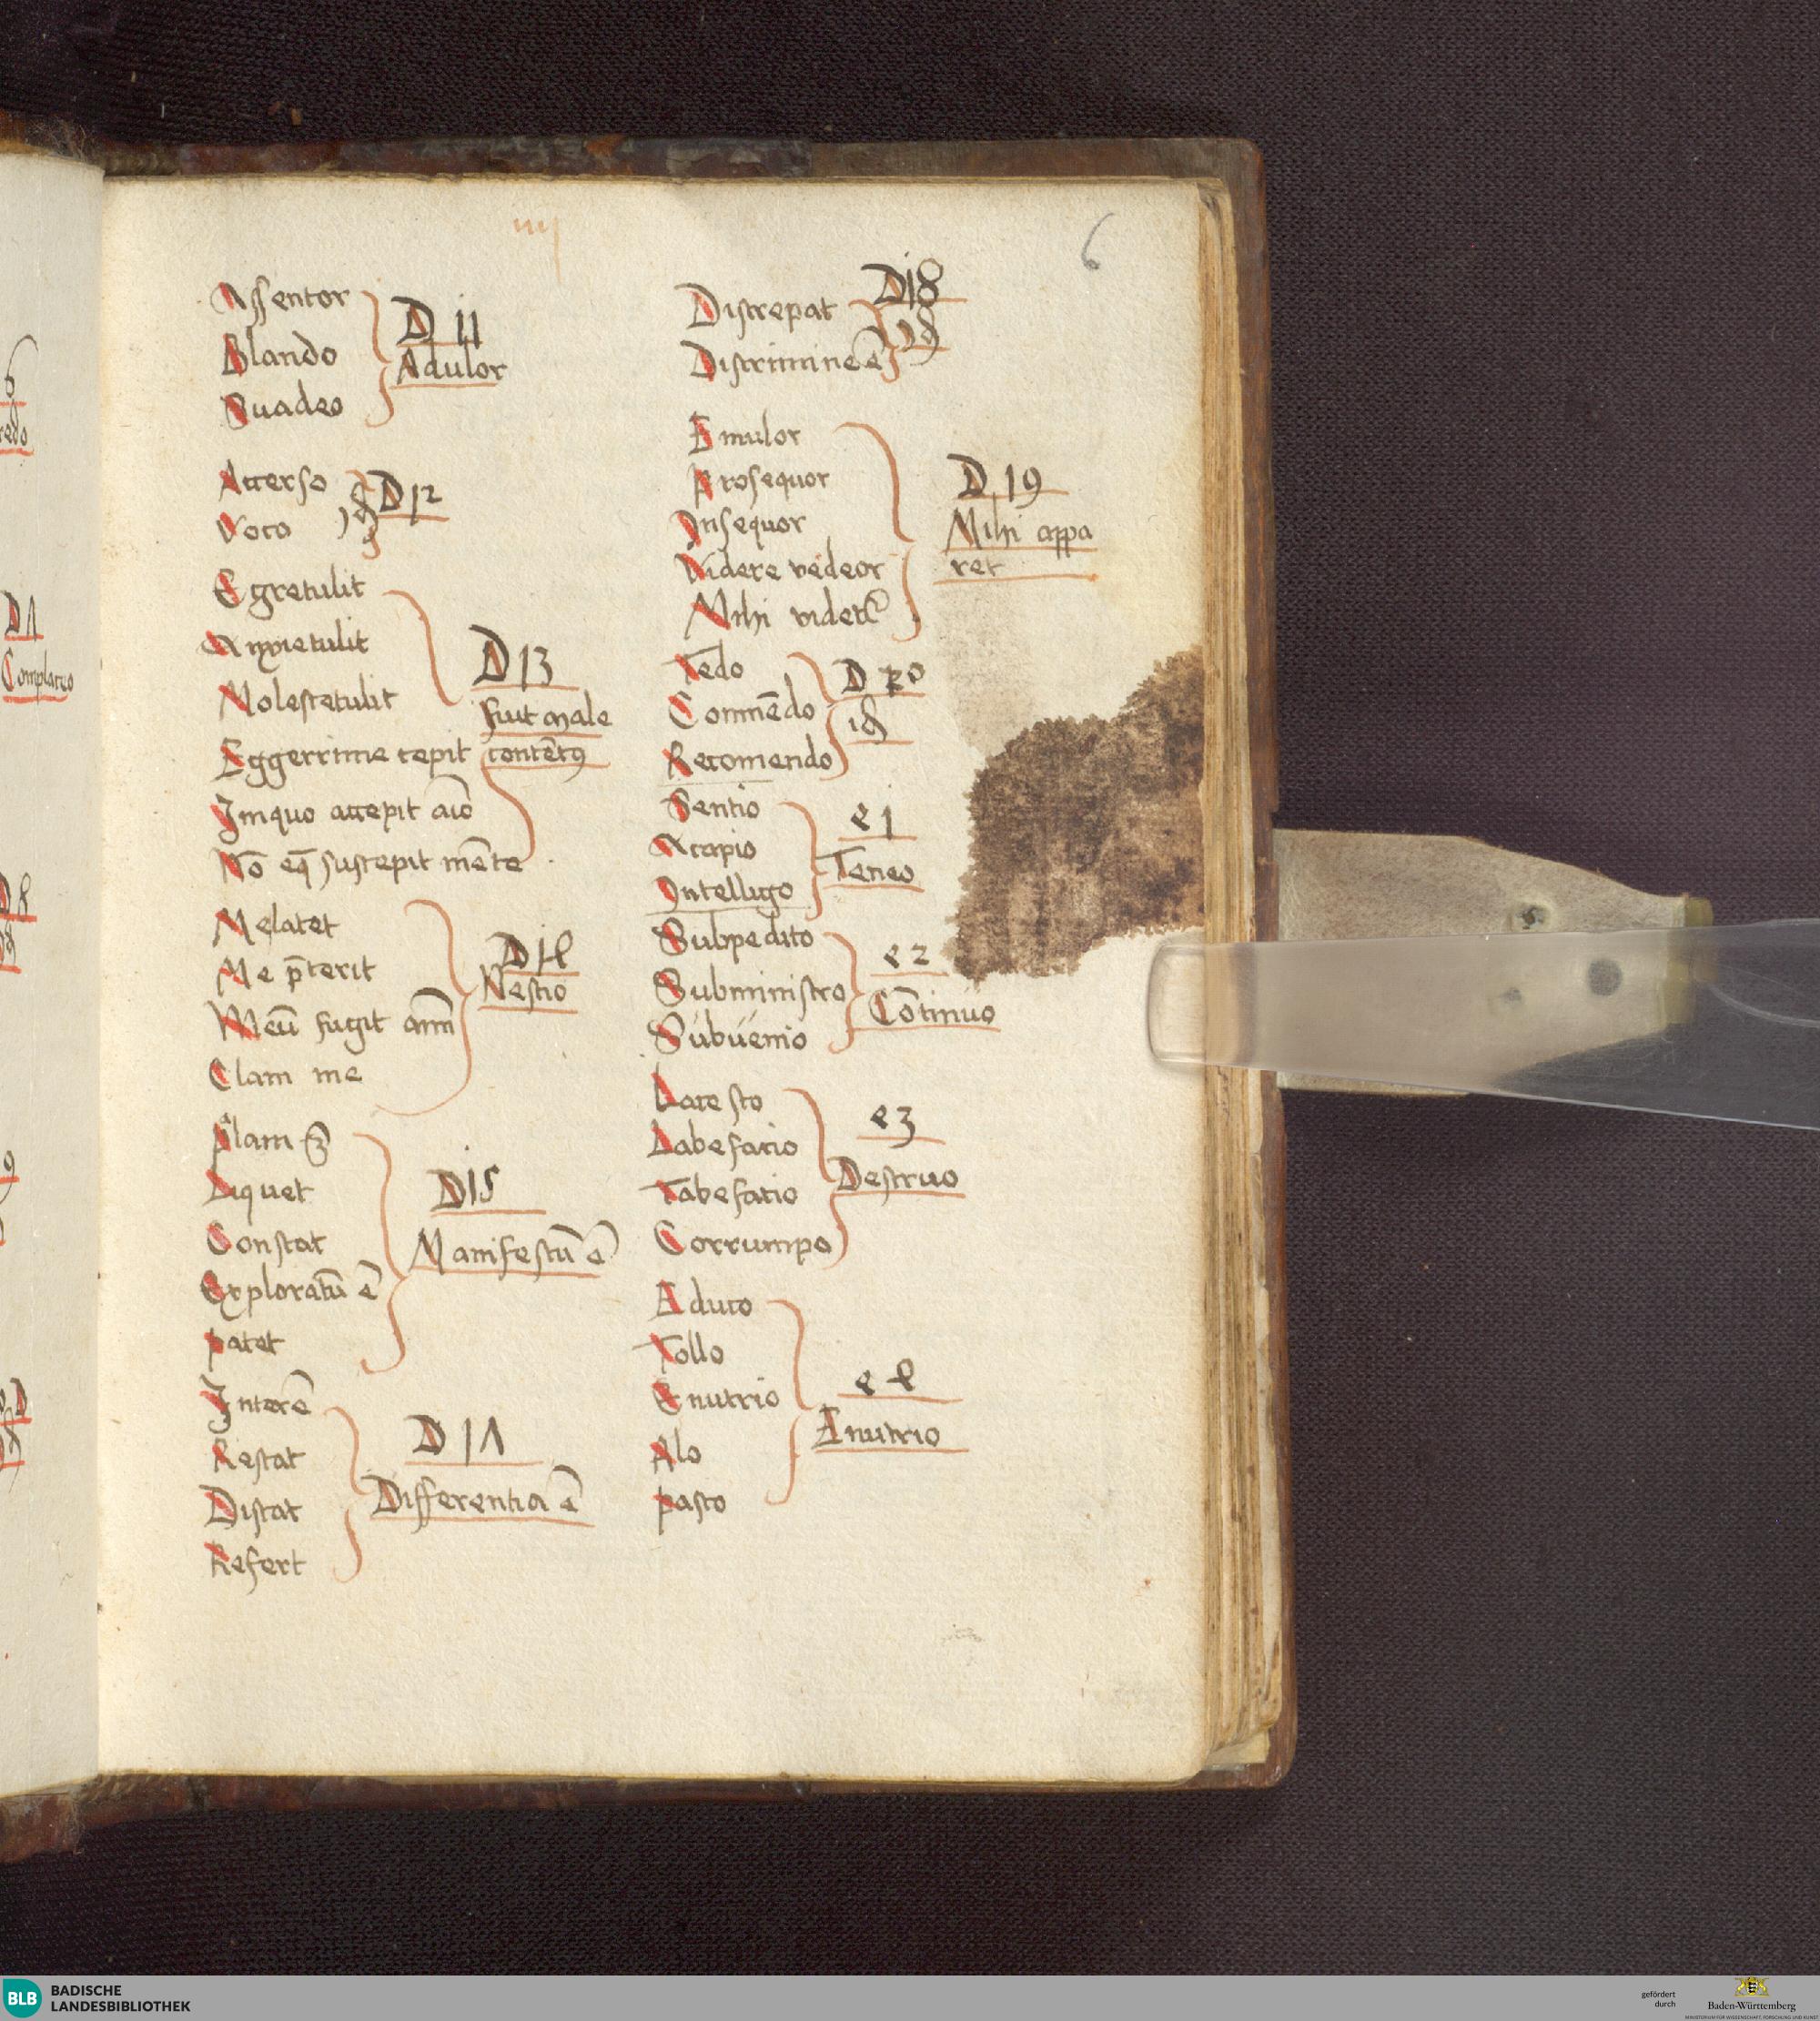 iiij
6
Assentor
Blando
Suadeo
D 11
Adulor
Accerso
Voco
D 12
Egretulit
Anxietulit
Molestetulit
Eggerrime cepit
Iniquo accepit aīo
Nō eq̄ suscepit mēte
D 13
Fuit male
contētꝰ
Me latet
Me p̄terit
Meū fugit aīm
Clam me
D 14
Nescio
Liquet
Constat
Exploratū ē
Patet
D 15
Manifestū ē
Interē
Restat
Distat
Refert
D 17
Differentia ē
Discrepat
Discrimine ē
D 18
Emulor
Prosequor
Insequor
Videre videor
Mihi videt᷑
D 19
Mihi appa
ret
Cedo
Commēdo
Recomendo
D 20
Sentio
Accipio
Intelligo
e 1
Teneo
Subpedito
Subministro
Subuenio
e 2
Cōtinuo
Lacesto
Labefacio
Tabefacio
Corrumpo
e 3
Destruo
Educo
Tollo
Enutrio
Alo
Pasco
e 4
Enutrio
redo
D 7
Complaceo
D 8
9
BLB
BADISCHE
LANDESBIBLIOTHEK
gefördert
durch
Baden-Württemberg
MINISTERIUM FÜR WISSENSCHAFT, FORSCHUNG UND KUNST